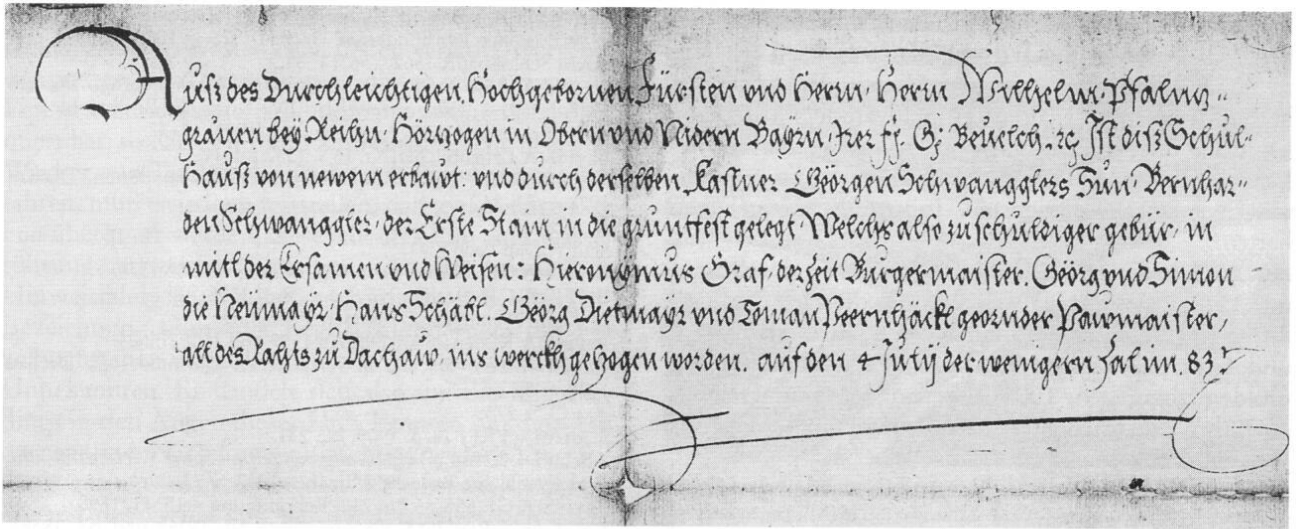 Auß des Durchleichtigen Hochgebornen Fürsten vnd Herrn, Herrn Wilhelm, Pfaltz-
grauen bey Reihn, Hörtzogen in Obern vnd Nidern Bayrn, Irer fſ. Gͨ Beuelch ꝛc Ist diß Schul-
Hauß von newem erbawt. vnd durch derselben Kastner Geörgen Schwangglers Sun, Bernhar-
den Schwanggler, der Erste Stain in die gruntfest gelegt, Welchs also zu schuldiger gebür, in
mitl der Ersamen vnd Weisen: Hieronymus Graf, derzeit Burgermaister. Geörg vnd Simon
die Neümayr, Hans Schäbl. Geörg Dietmayr vnd Toman Peernhäckl geornder Pawmaister,
all des Rahts zu Dachaw, ins werckh gezogen worden. auf den 4 Julij der wenigern Zal im 83.